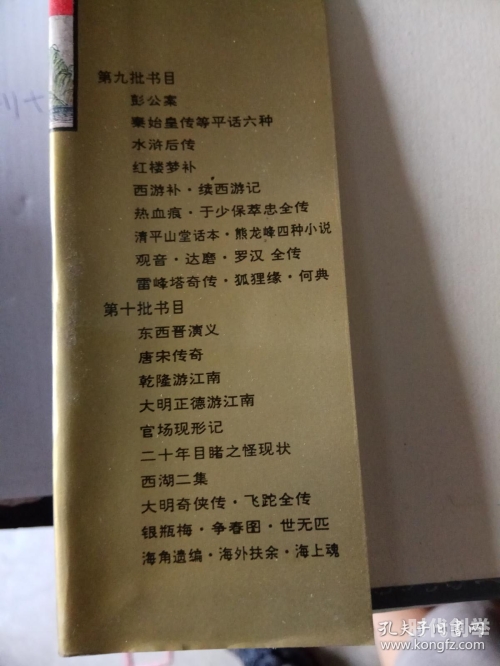 第九批书目
彭公案
秦始皇传等平话六种
水浒后传
红楼梦补
西游补·续西游记
热血痕·于少保萃忠全传
清平山堂话本·熊龙峰四种小说
观音·达磨·罗汉 全传
雷峰塔奇传·狐狸缘·何典
第十批书目
东西晋演义
唐宋传奇
乾隆游江南
大明正德游江南
官场现形记
二十年目睹之怪现状
西湖二集
大明奇侠传·飞跎全传
银瓶梅·争春图·世无匹
海角遗编·海外扶余·海上魂
孔夫子旧书网
kongfz.com